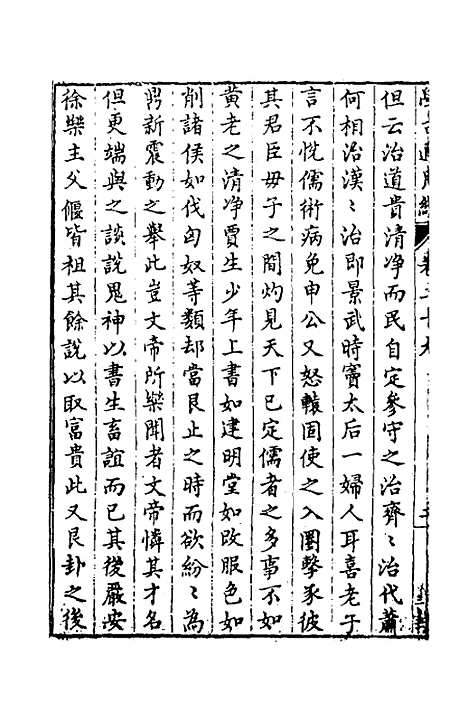 但云治道貴清净而民自定參守之治齊〻治代蕭
何相治漢〻治即景武時竇太后一婦人耳喜老子
言不恱儒術病免申公又怒轅固使之入圏擊豕彼
其君臣毋子之間灼見天下已定儒者之多事不如
黄老之清净賈生少年上書如建明堂如改服色如
削諸侯如伐匈奴等類却當艮止之時而欲紛〻為
鼎新震動之舉此豈文帝所樂聞者文帝憐其才名
但更端與之談說鬼神以書生畜誼而已其後嚴安
徐樂主父偃皆祖其餘說以取富貴此又艮卦之後